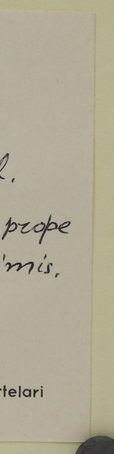 l.
prope
imis.
rtelari